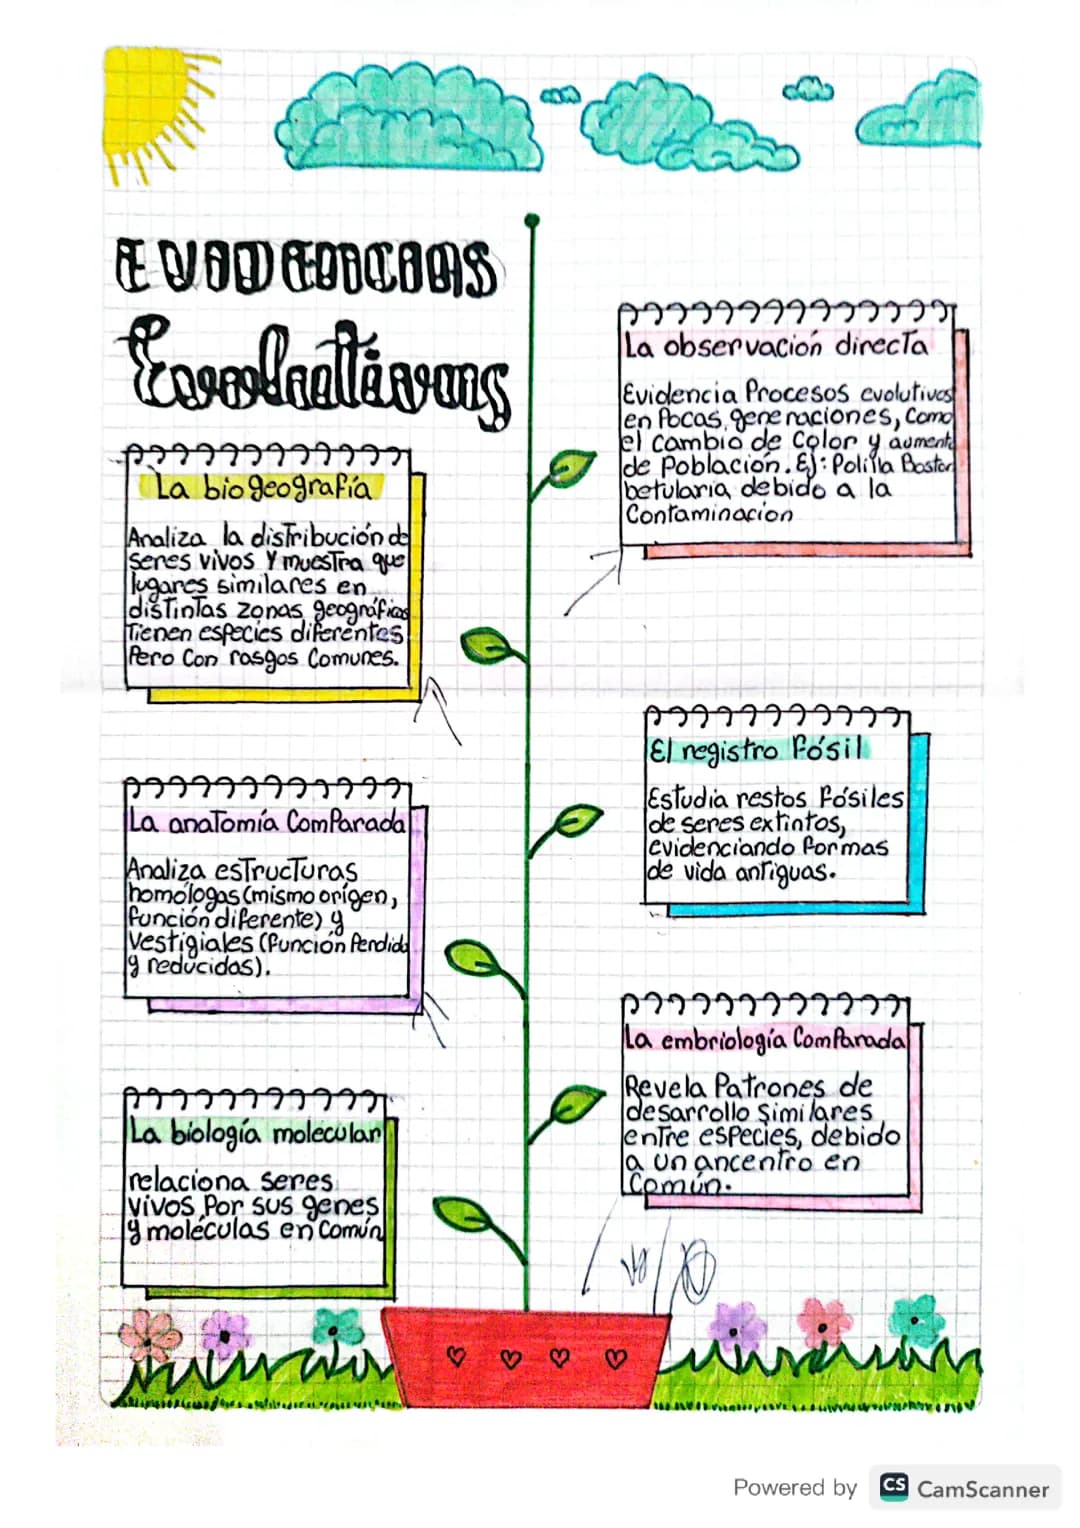 EVIDENCIAS
Evolutivas
La biogeografía
Analiza la distribución de
seres vivos y muestra que
lugares similares en
distintas zonas geográficas
Tienen especies diferentes
Pero con rasgos comunes.
La anatomía Comparada
Analiza estructuras
homólogas (mismo origen,
función diferente) y
vestigiales (función Perdida
y reducidas).
La biología molecular
relaciona seres
vivos Por sus genes
y moléculas en común
La observación directa
Evidencia Procesos evolutivos
en Pocas generaciones, como
el cambio de color y aumento
de Población. Ej: Polilla Boston
betularia debido a la
Contaminación
El registro fósil
Estudia restos fósiles
de seres extintos,
evidenciando formas
de vida antiguas.
La embriología Comparada
Revela Patrones de
desarrollo similares
entre especies, debido
a un ancentro en
Común.
Powered by CS CamScanner